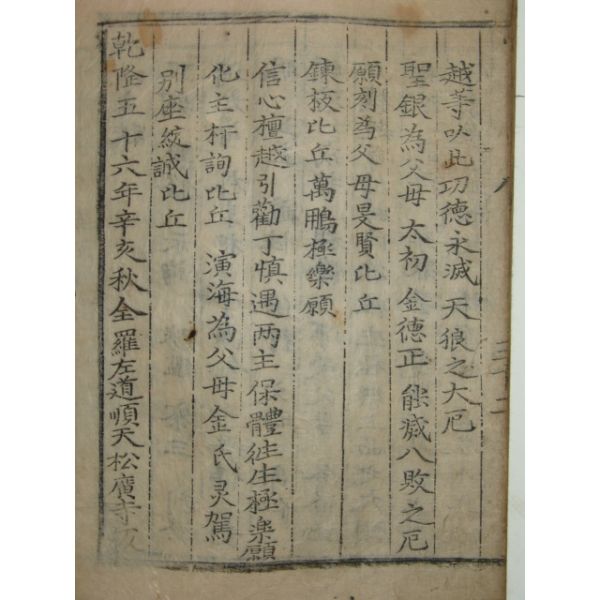 越等以此功德永滅 天狼之大厄
聖銀為父母 太初 金德正 能滅八敗之厄
願刻為父母旻賢比丘
鍊板比丘萬鵬極樂願
信心檀越引勸丁慎遇兩主 保體往生極樂願
化主杆詢比丘 演海為父母金氏灵駕
別座紋誠比丘
乾隆五十六年辛亥秋全羅左道順天松廣寺